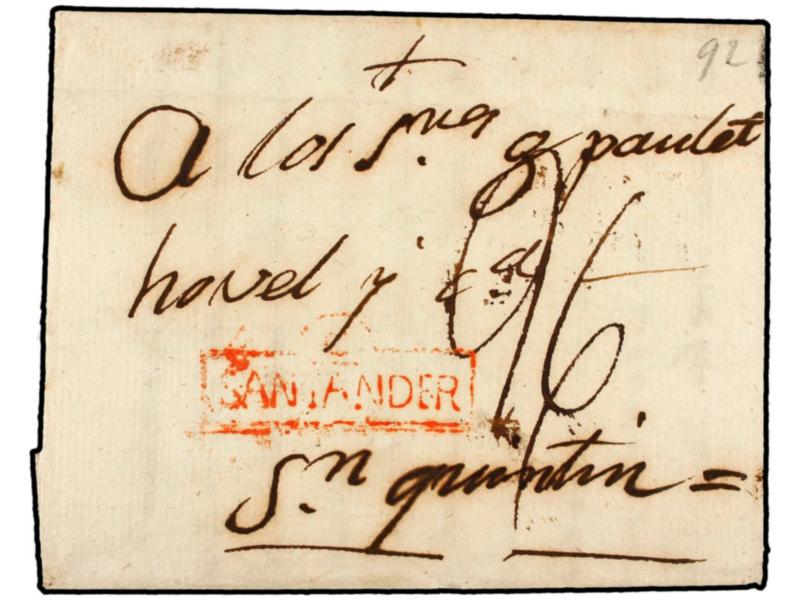 92
A los S.res g paulet
hovel y ca
96
SANTANDER
S.n quintin =